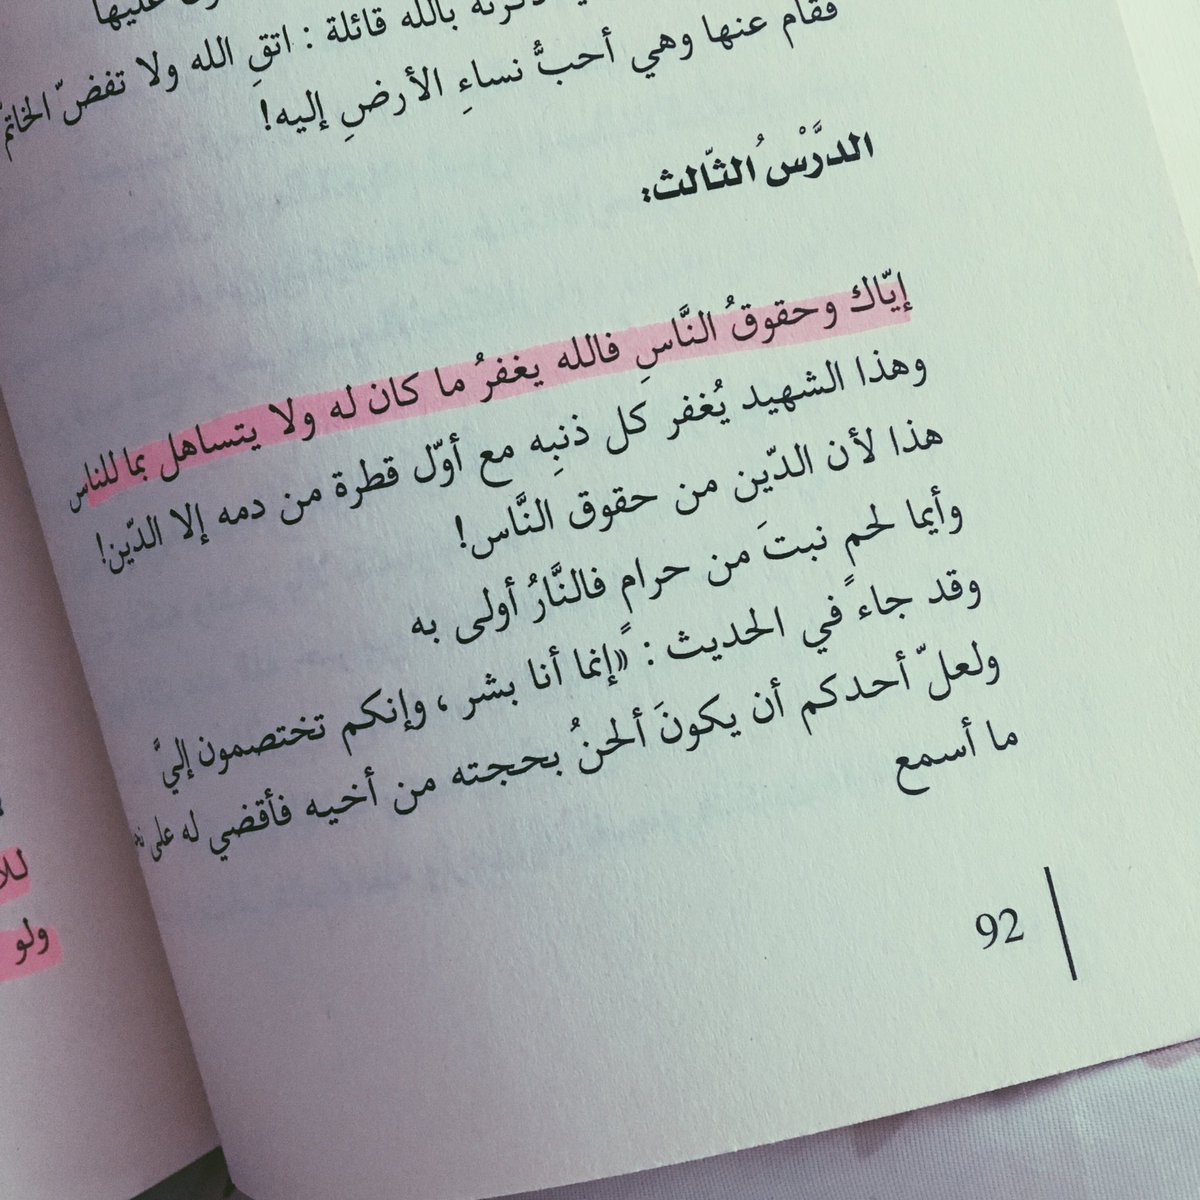 عليها
بالله قائلة : اتقِ الله ولا تفضّ الخاتم
فقام عنها وهي أحبُّ نساءِ الأرضِ إليه!
الدَّرْسُ الثّالث:
إيّاك وحقوقُ النَّاسِ فالله يغفرُ ما كان له ولا يتساهل بما للناس
وهذا الشهيد يُغفر كل ذنبِه مع أوّل قطرة من دمه إلا الدّين!
هذا لأن الدّين من حقوق النَّاس!
وأيما لحمٍ نبتَ من حرامٍ فالنَّارُ أولى به
وقد جاء في الحديث : «إنما أنا بشر ، وإنكم تختصمون إليَّ
ولعلّ أحدكم أن يكونَ ألحنُ بحجته من أخيه فأقضي له على
ما أسمع
92
ولو